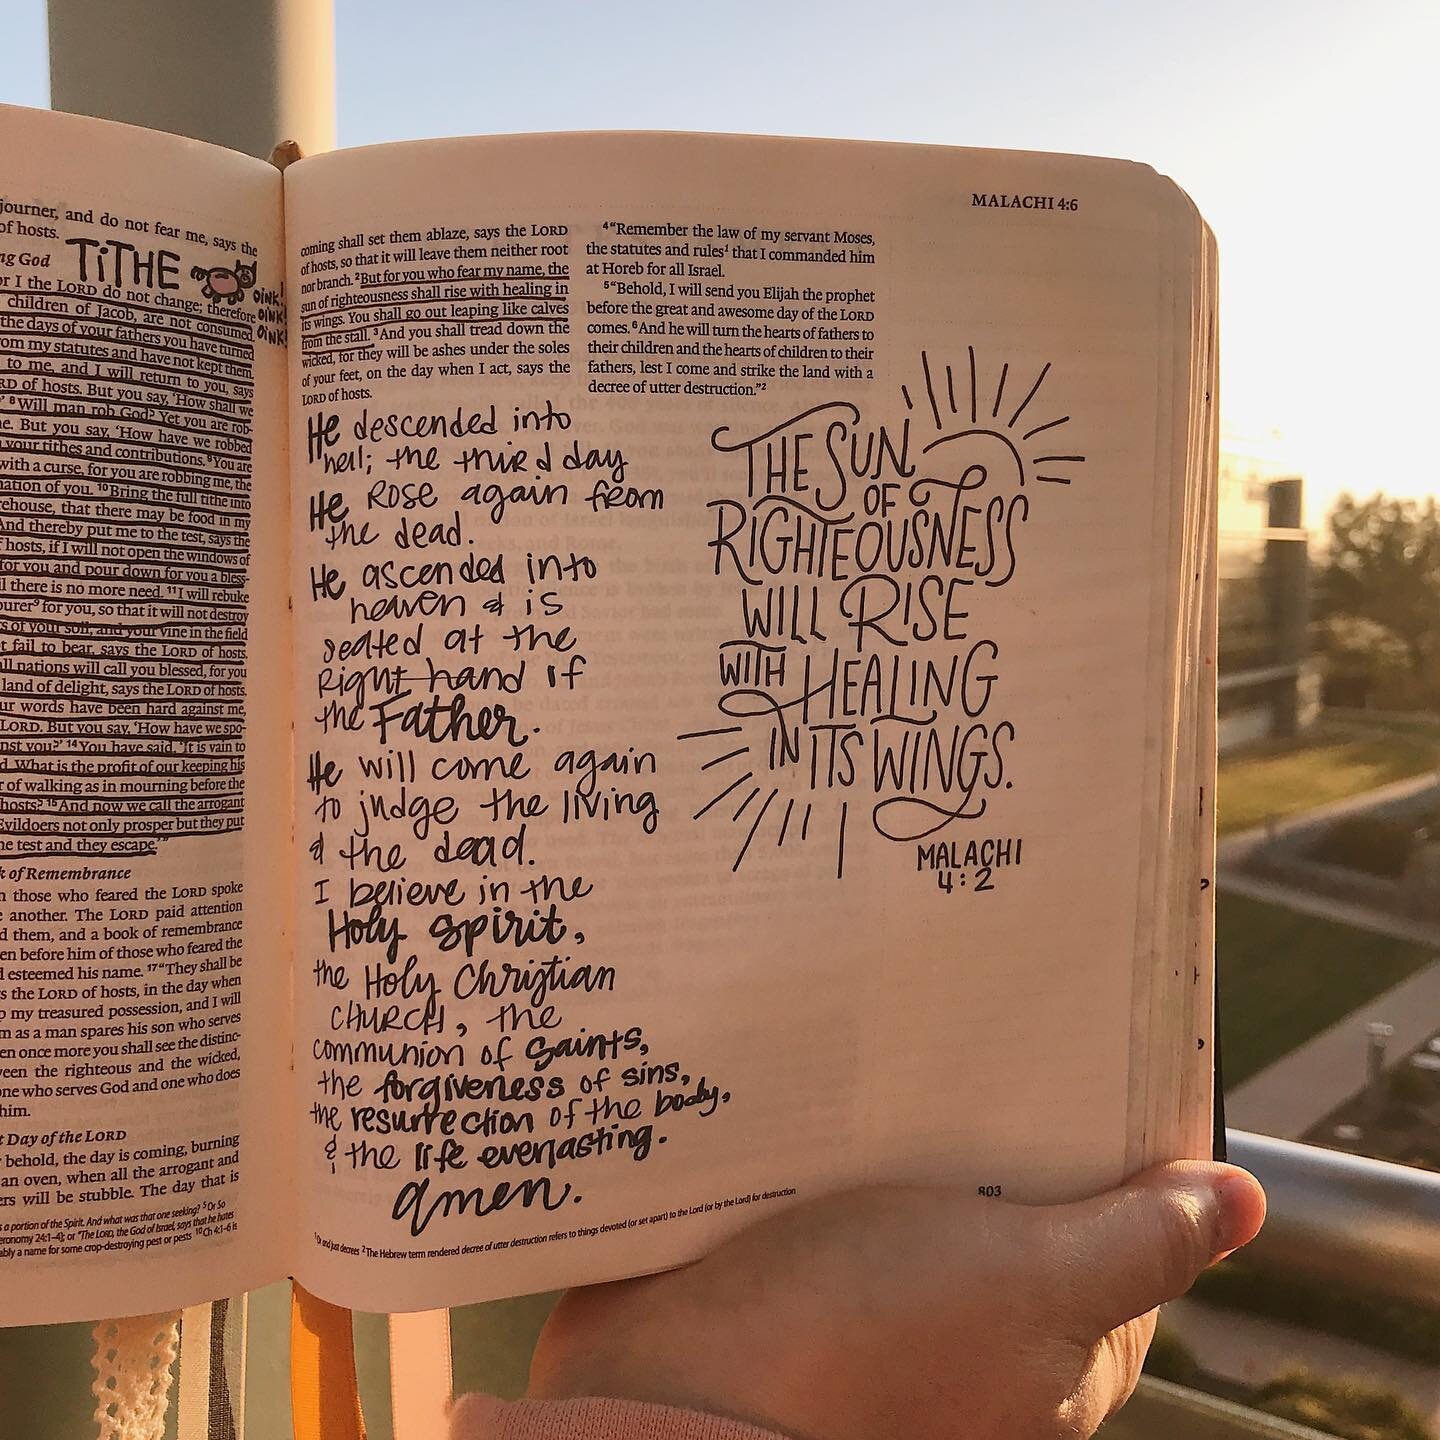 journer, and do not fear me, says the
of hosts.
TiTHE
OINK!
OINK!
OINK!
ng God
or I the LORD do not change; therefore
children of Jacob, are not consumed.
the days of your fathers you have turned
om my statutes and have not kept them.
to me, and I will return to you, says
RD of hosts. But you say, 'How shall we
8 Will man rob God? Yet you are rob-
e. But you say, 'How have we robbed
your tithes and contributions. 9 You are
with a curse, for you are robbing me, the
nation of you. 10 Bring the full tithe into
rehouse, that there may be food in my
And thereby put me to the test, says the
f hosts, if I will not open the windows of
for you and pour down for you a bless-
il there is no more need. 11 I will rebuke
ourer9 for you, so that it will not destroy
s of your soil, and your vine in the field
t fail to bear, says the LORD of hosts.
all nations will call you blessed, for you
land of delight, says the LORD of hosts.
ur words have been hard against me,
LORD. But you say, 'How have we spo-
nst you?' 14 You have said, 'It is vain to
d. What is the profit of our keeping his
r of walking as in mourning before the
hosts? 15 And now we call the arrogant
Evildoers not only prosper but they put
he test and they escape.'"
k of Remembrance
n those who feared the LORD spoke
e another. The LORD paid attention
d them, and a book of remembrance
en before him of those who feared the
d esteemed his name. 17 "They shall be
s the LORD of hosts, in the day when
p my treasured possession, and I will
m as a man spares his son who serves
en once more you shall see the distinc-
ween the righteous and the wicked,
one who serves God and one who does
him.
t Day of the LORD
behold, the day is coming, burning
an oven, when all the arrogant and
ers will be stubble. The day that is
s a portion of the Spirit. And what was that one seeking? 5 Or So
eronomy 24:1–4); or "The LORD, the God of Israel, says that he hates
ably a name for some crop-destroying pest or pests 10 Ch 4:1–6 is
MALACHI 4:6
coming shall set them ablaze, says the LORD
of hosts, so that it will leave them neither root
nor branch. 2 But for you who fear my name, the
sun of righteousness shall rise with healing in
its wings. You shall go out leaping like calves
from the stall. 3 And you shall tread down the
wicked, for they will be ashes under the soles
of your feet, on the day when I act, says the
LORD of hosts.
4 "Remember the law of my servant Moses,
the statutes and rules1 that I commanded him
at Horeb for all Israel.
5 "Behold, I will send you Elijah the prophet
before the great and awesome day of the LORD
comes. 6 And he will turn the hearts of fathers to
their children and the hearts of children to their
fathers, lest I come and strike the land with a
decree of utter destruction."2
He descended into
hell; the third day
He Rose again from
the dead.
He ascended into
heaven & is
seated at the
Right hand of
the Father.
He will come again
to judge the living
& the dead.
I believe in the
Holy Spirit,
the Holy Christian
CHURCH, the
communion of saints,
the forgiveness of sins,
the resurrection of the body,
& the life everlasting.
amen.
THE SUN
OF
RIGHTEOUSNESS
WILL RISE
WITH HEALING
IN ITS WINGS.
MALACHI
4:2
1 Or and just decrees 2 The Hebrew term rendered decree of utter destruction refers to things devoted (or set apart) to the Lord (or by the Lord) for destruction
803